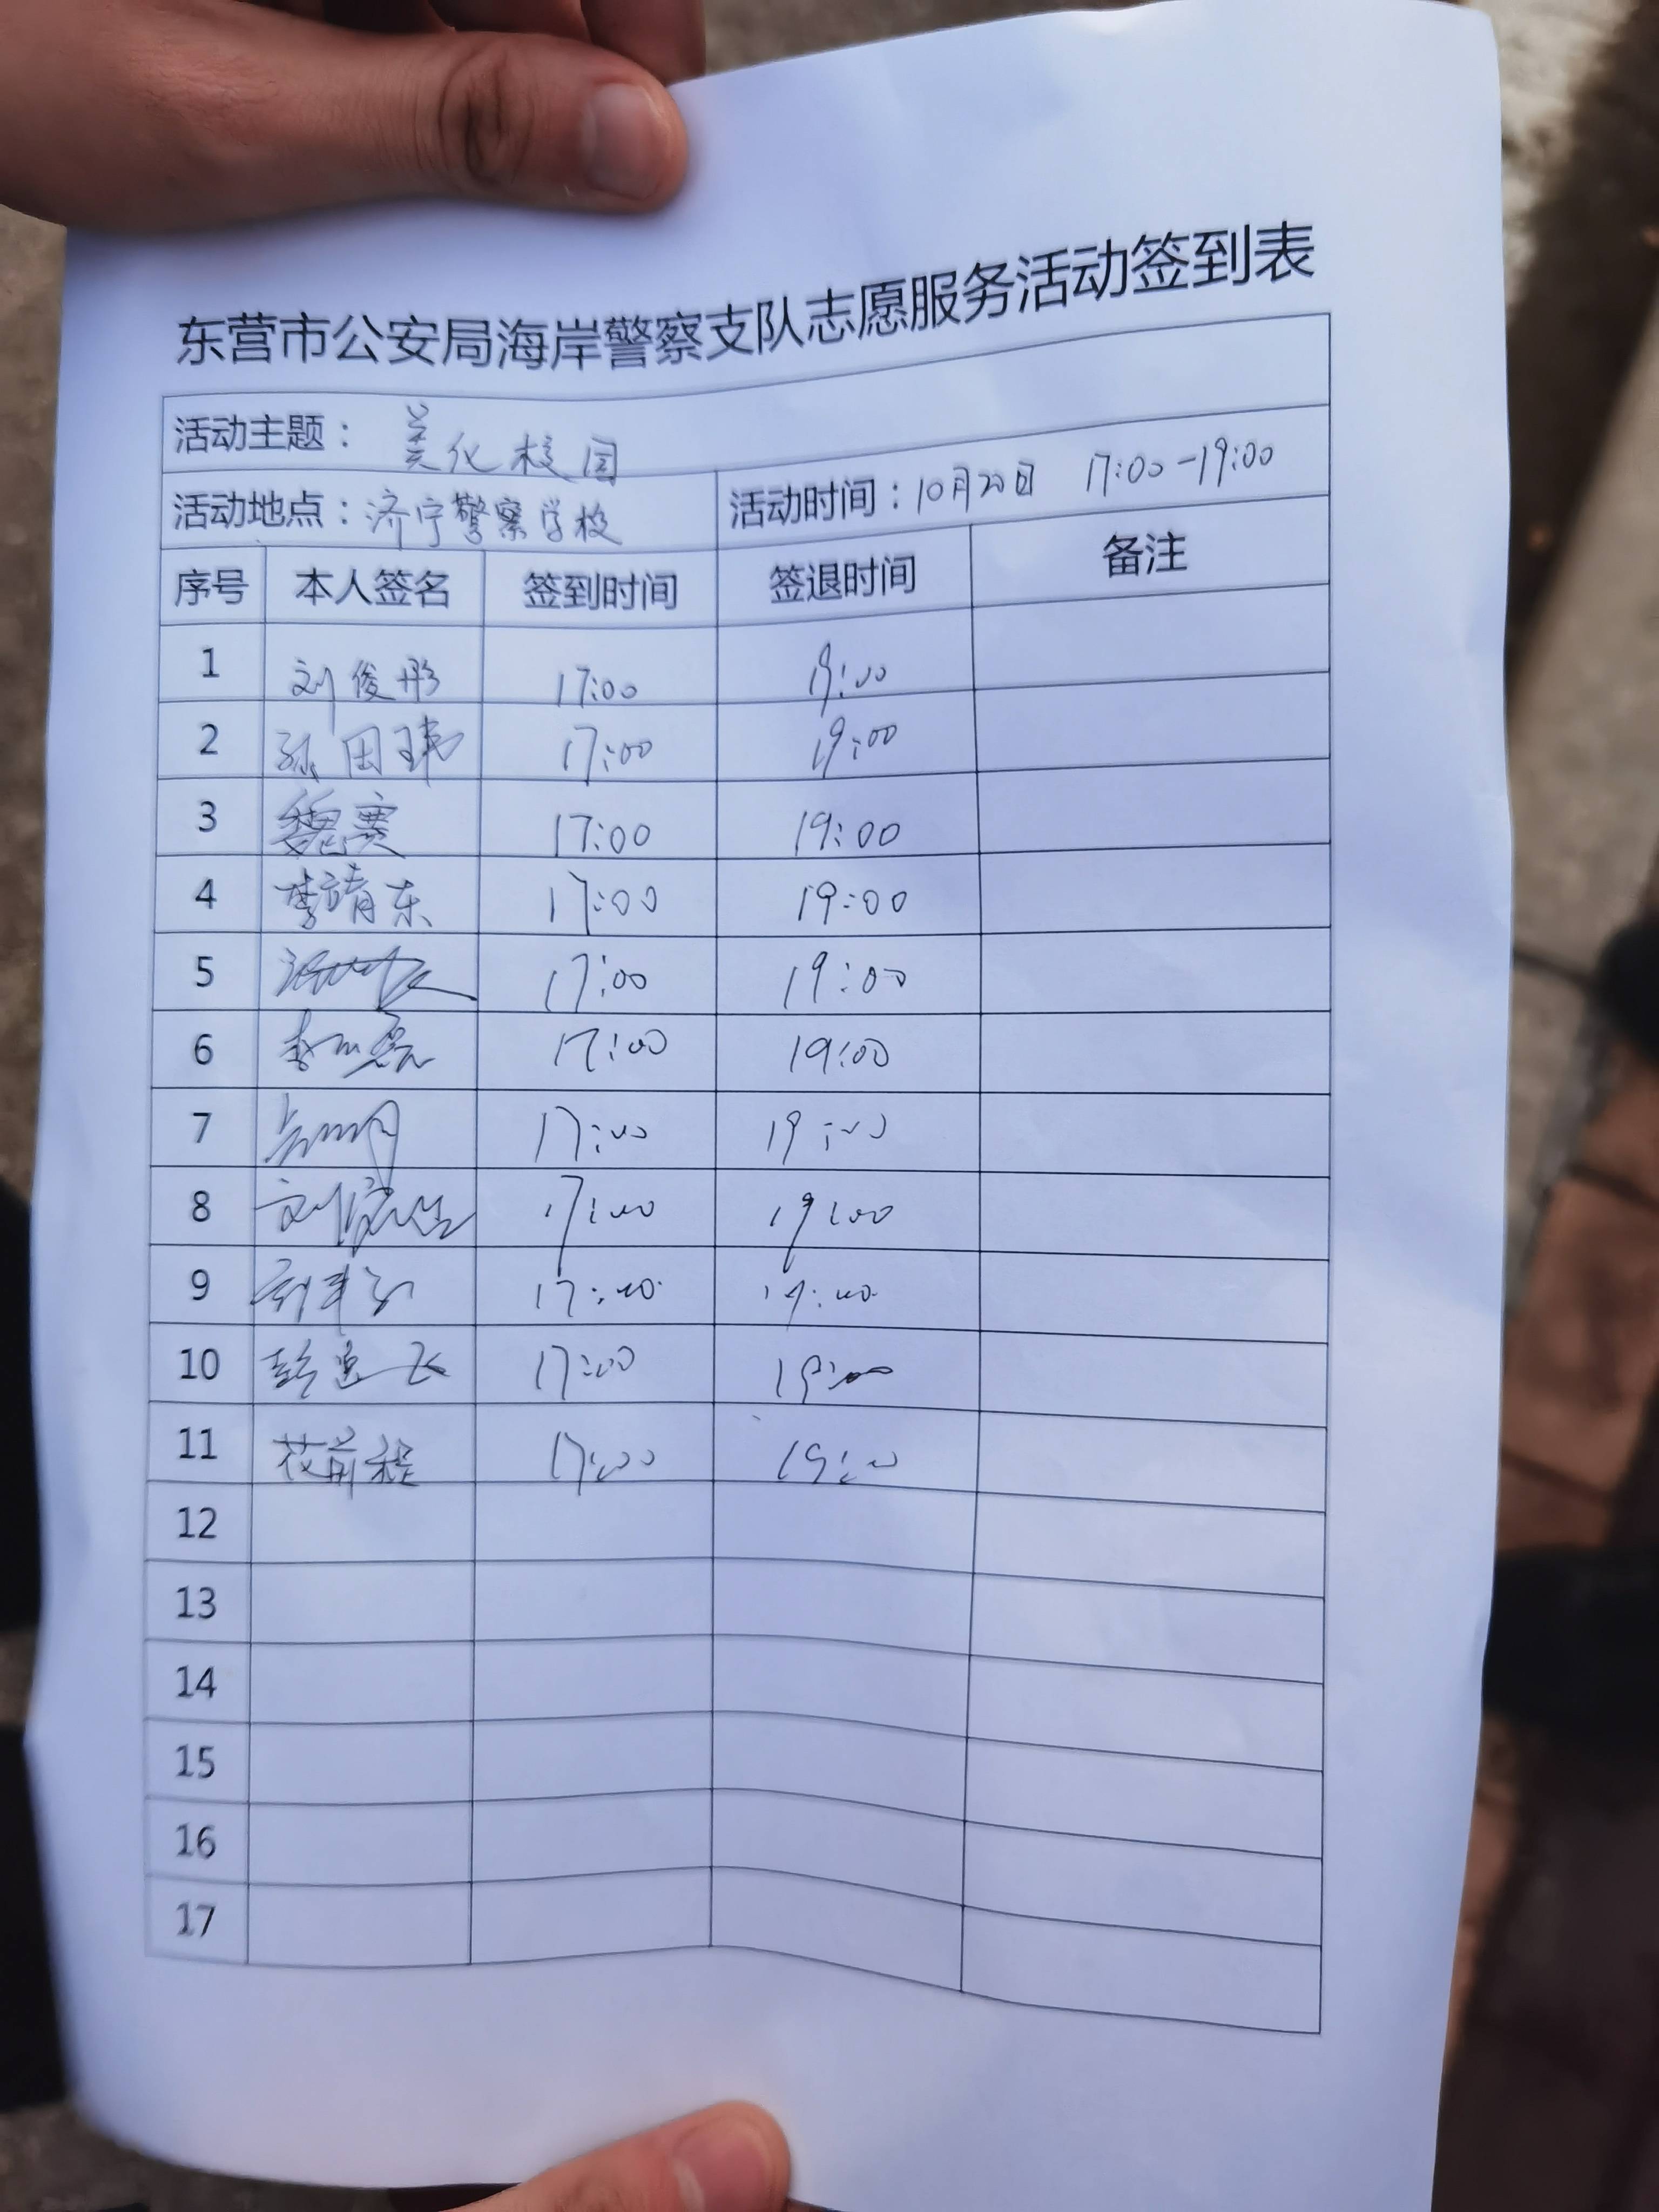 东营市公安局海岸警察支队志愿服务活动签到表
活动主题： 美化校园
活动地点：济宁警察学校 活动时间：10月20日 17:00-19:00
序号 本人签名 签到时间 签退时间 备注
1 刘俊彤 17:00 19:00
2 孙田玮 17:00 19:00
3 魏赛 17:00 19:00
4 李靖东 17:00 19:00
5 17:00 19:00
6 17:00 19:00
7 17:00 19:00
8 17:00 19:00
9 17:00 19:00
10 17:00 19:00
11 花前程 17:00 19:00
12
13
14
15
16
17